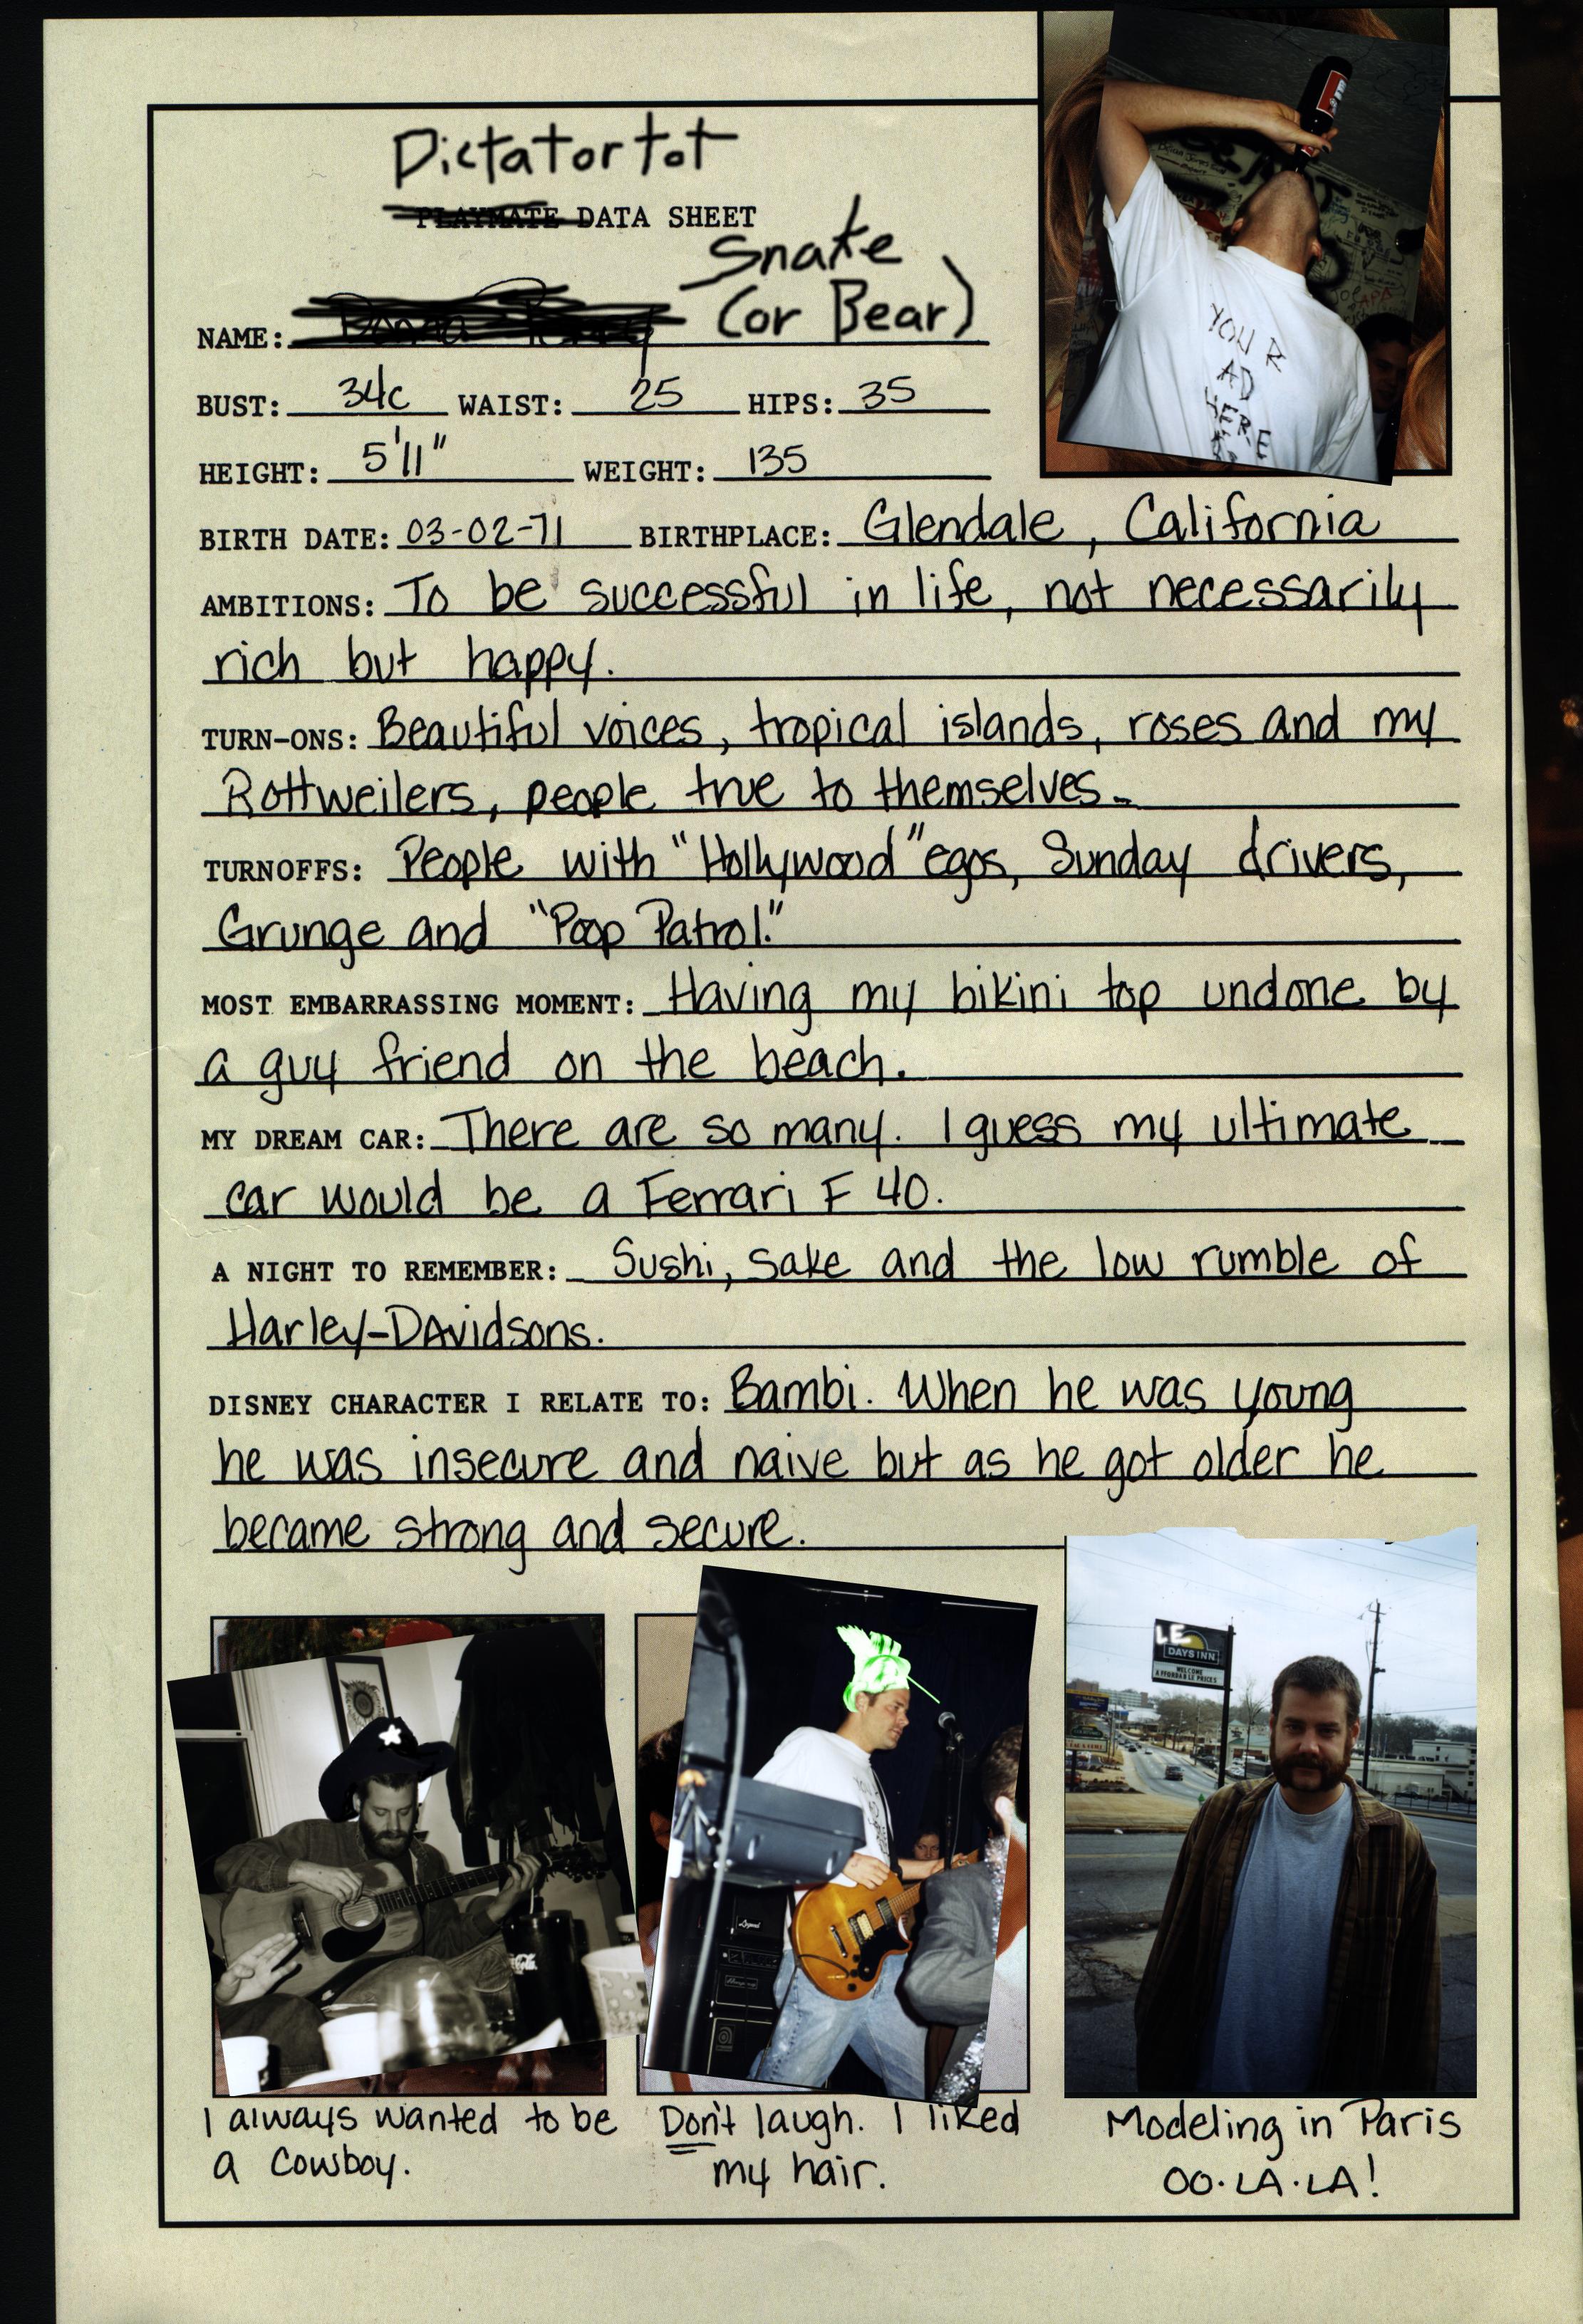 Dictatortot
PLAYMATE DATA SHEET
Snake
NAME: (or Bear)
BUST: 34c WAIST: 25 HIPS: 35
HEIGHT: 5'11" WEIGHT: 135
BIRTH DATE: 03-02-71 BIRTHPLACE: Glendale, California
AMBITIONS: To be successful in life, not necessarily
rich but happy.
TURN-ONS: Beautiful voices, tropical islands, roses and my
Rottweilers, people true to themselves.
TURNOFFS: People with "Hollywood" egos, Sunday drivers,
Grunge and "Poop Patrol."
MOST EMBARRASSING MOMENT: Having my bikini top undone by
a guy friend on the beach.
MY DREAM CAR: There are so many. I guess my ultimate
car would be a Ferrari F 40.
A NIGHT TO REMEMBER: Sushi, Sake and the low rumble of
Harley-Davidsons.
DISNEY CHARACTER I RELATE TO: Bambi. When he was young
he was insecure and naive but as he got older he
became strong and secure.
YOUR
AD
HERE
LE
DAYS INN
WELCOME
AFFORDABLE PRICES
I always wanted to be
a Cowboy.
Don't laugh. I liked
my hair.
Modeling in Paris
OO·LA·LA!